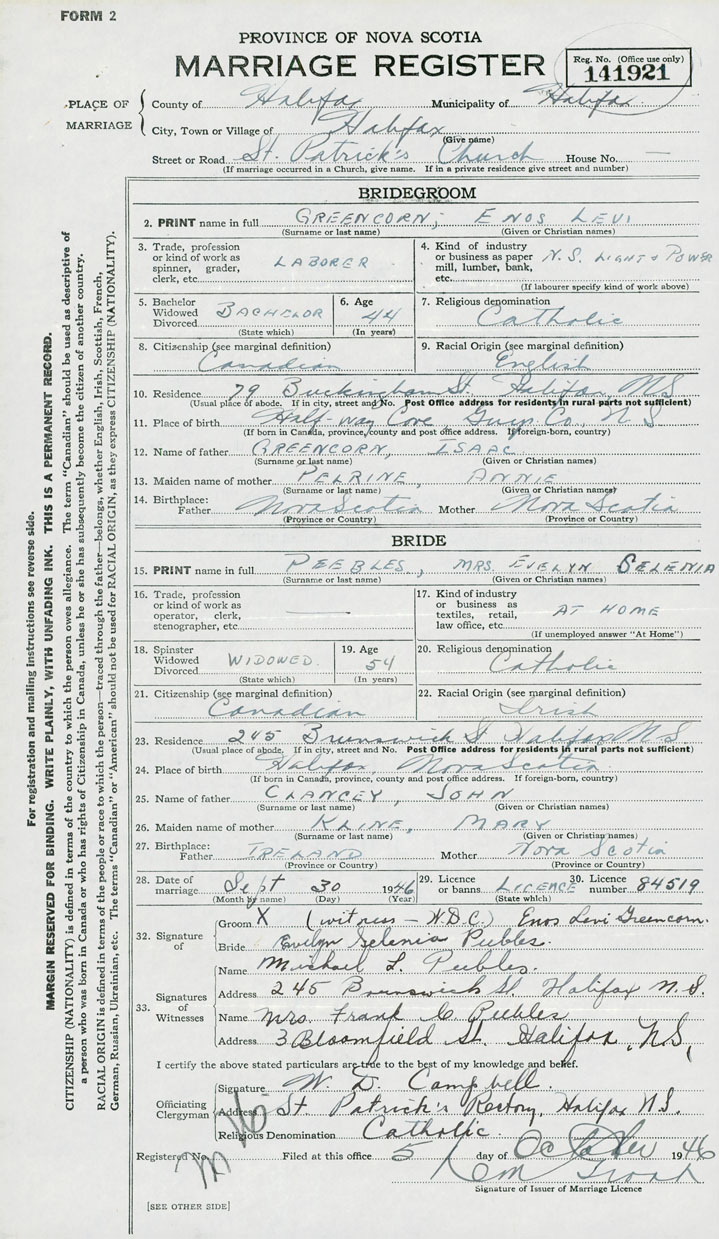 FORM 2
PROVINCE OF NOVA SCOTIA
MARRIAGE REGISTER
Reg. No. (Office use only)
141921
PLACE OF MARRIAGE
County of Halifax Municipality of Halifax
City, Town or Village of Halifax
(Give name)
Street or Road St. Patrick's Church House No. —
(If marriage occurred in a Church, give name. If in a private residence give street and number)
BRIDEGROOM
2. PRINT name in full GREENCORN, ENOS LEVI
(Surname or last name) (Given or Christian names)
3. Trade, profession or kind of work as spinner, grader, clerk, etc. LABORER
4. Kind of industry or business as paper mill, lumber, bank, etc. N.S. LIGHT & POWER
(If labourer specify kind of work above)
5. Bachelor Widowed Divorced BACHELOR
(State which)
6. Age 44
(In years)
7. Religious denomination Catholic
8. Citizenship (see marginal definition) Canadian
9. Racial Origin (see marginal definition) English
10. Residence 79 Buckingham St. Halifax, N.S
(Usual place of abode. If in city, street and No. Post Office address for residents in rural parts not sufficient)
11. Place of birth Half-Way Cove, Guys. Co., N.S
(If born in Canada, province, county and post office address. If foreign-born, country)
12. Name of father GREENCORN, ISAAC
(Surname or last name) (Given or Christian names)
13. Maiden name of mother PELRINE, ANNIE
(Surname or last name) (Given or Christian names)
14. Birthplace: Father Nova Scotia Mother Nova Scotia
(Province or Country) (Province or Country)
BRIDE
15. PRINT name in full PEEBLES, MRS. EVELYN SELENIA
(Surname or last name) (Given or Christian names)
16. Trade, profession or kind of work as operator, clerk, stenographer, etc. —
17. Kind of industry or business as textiles, retail, law office, etc. AT HOME
(If unemployed answer "At Home")
18. Spinster Widowed Divorced WIDOWED.
(State which)
19. Age 54
(In years)
20. Religious denomination Catholic
21. Citizenship (see marginal definition) Canadian
22. Racial Origin (see marginal definition) Irish
23. Residence 245 Brunswick St Halifax N.S
(Usual place of abode. If in city, street and No. Post Office address for residents in rural parts not sufficient)
24. Place of birth Halifax Nova Scotia
(If born in Canada, province, county and post office address. If foreign-born, country)
25. Name of father CLANCEY, JOHN
(Surname or last name) (Given or Christian names)
26. Maiden name of mother KLINE, MARY
(Surname or last name) (Given or Christian names)
27. Birthplace: Father IRELAND Mother Nova Scotia
(Province or Country) (Province or Country)
28. Date of marriage Sept 30 1946
(Month by name) (Day) (Year)
29. Licence or banns LICENCE
(State which)
30. Licence number 84519
32. Signature of
Groom X (witness - W.D.C.) Enos Levi Greencorn.
Bride Evelyn Selenia Peebles.
33. Signatures of Witnesses
Name Michael L. Peebles.
Address 245 Brunswick St. Halifax N.S.
Name Mrs. Frank C Peebles
Address 3 Bloomfield St. Halifax, N.S.
I certify the above stated particulars are true to the best of my knowledge and belief.
Officiating Clergyman
Signature W. D. Campbell.
Address St. Patrick's Rectory, Halifax N.S.
Religious Denomination Catholic.
Registered No. Filed at this office 5 day of October 1946
Signature of Issuer of Marriage Licence
[SEE OTHER SIDE]
For registration and mailing instructions see reverse side.
MARGIN RESERVED FOR BINDING. WRITE PLAINLY, WITH UNFADING INK. THIS IS A PERMANENT RECORD.
CITIZENSHIP (NATIONALITY) is defined in terms of the country to which the person owes allegiance. The term "Canadian" should be used as descriptive of
a person who was born in Canada or who has rights of Citizenship in Canada, unless he or she has subsequently become the citizen of another country.
RACIAL ORIGIN is defined in terms of the people or race to which the person—traced through the father—belongs, whether English, Irish, Scottish, French,
German, Russian, Ukrainian, etc. The terms "Canadian" or "American" should not be used for RACIAL ORIGIN, as they express CITIZENSHIP (NATIONALITY).